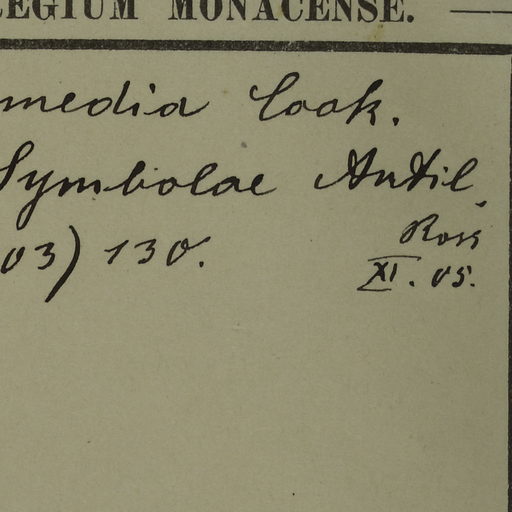 REGIUM MONACENSE.
media Cook.
Symbolae Antil.
03) 130.
Ross
XI. 05.